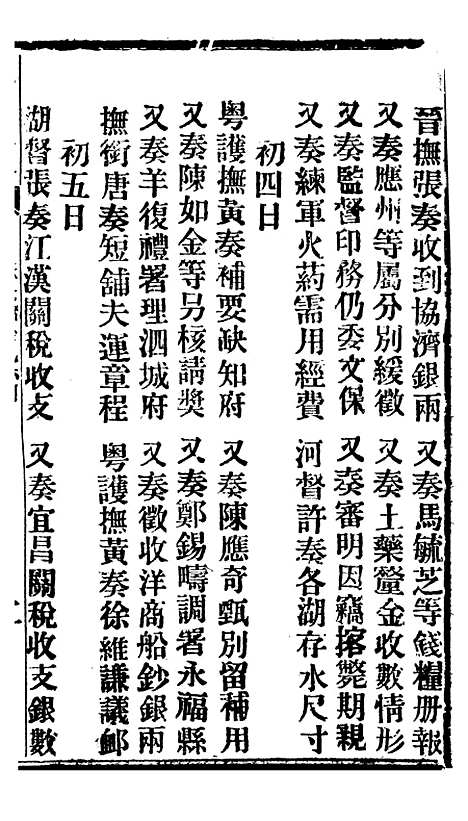 晉撫張奏收到協濟銀兩　又奏馬毓芝等錢糧册報
又奏應州等屬分別緩徵　又奏土藥釐金收數情形
又奏監督印務仍委文保　又奏審明因竊搭斃期親
又奏練軍火葯需用經費　河督許奏各湖存水尺寸
初四日
粵護撫黃奏補要缺知府　又奏陳應奇甄別留補用
又奏陳如金等另核請獎　又奏鄭錫疇調署永福縣
又奏羊復禮署理泗城府　又奏徵收洋商船鈔銀兩
撫銜唐奏短舖夫運章程　粵護撫黃奏徐維謙議卹
初五日
湖督張奏江漢關稅收支　又奏宜昌關稅收支銀數